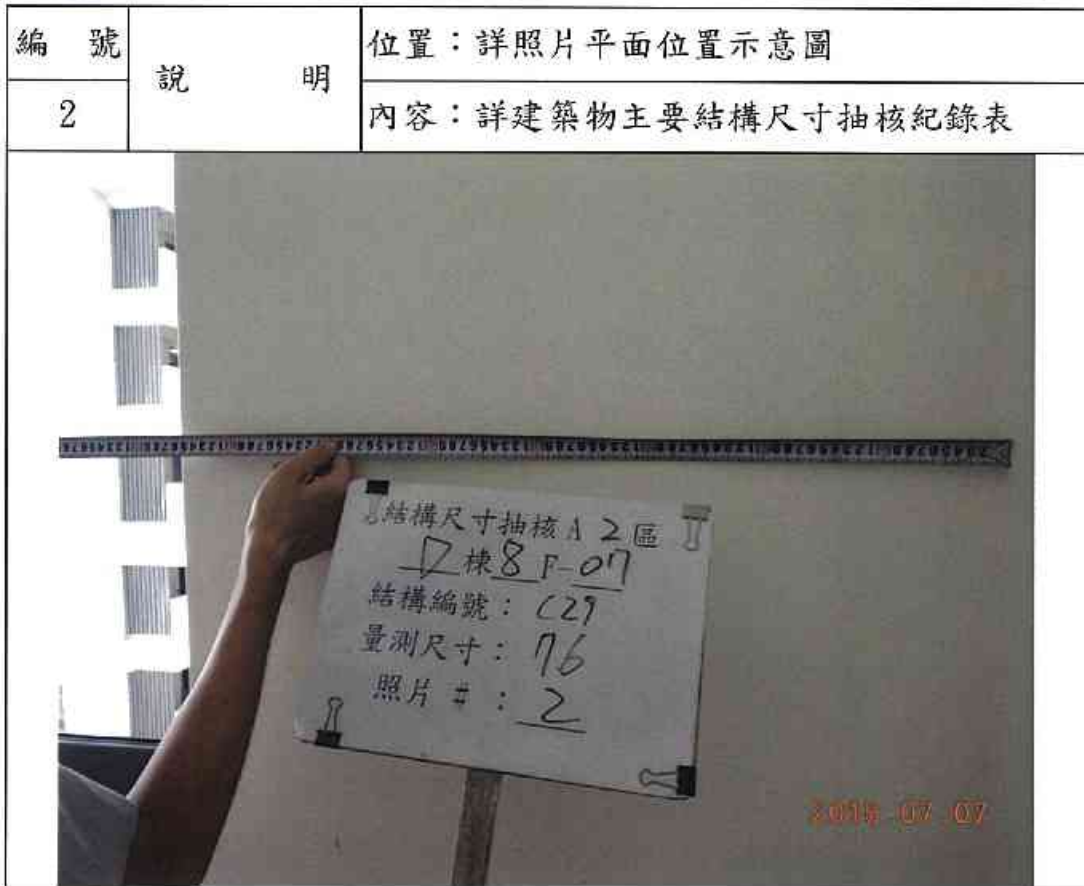 編 號
說 明
位置：詳照片平面位置示意圖
2
內容：詳建築物主要結構尺寸抽核紀錄表
結構尺寸抽核 A 2 區
D 棟 8 F-07
結構編號： C29
量測尺寸： 76
照片 # ： 2
07 07